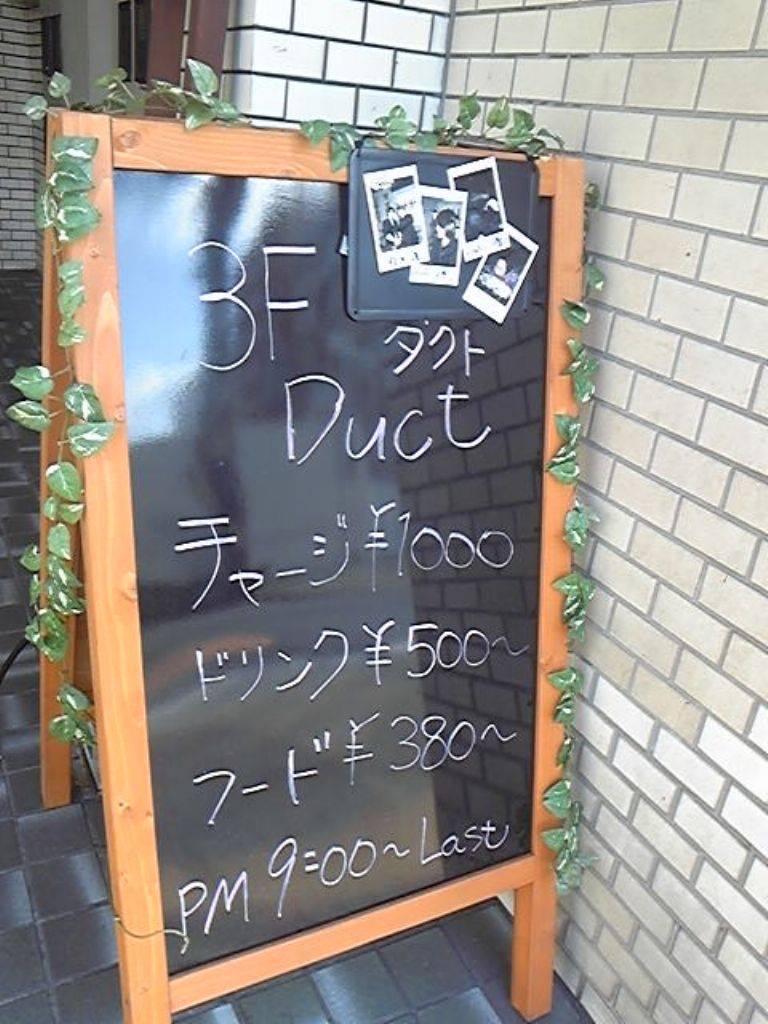 3F
ダクト
Duct
チャージ ¥1000
ドリンク ¥500~
フード ¥380~
PM 9:00~Last